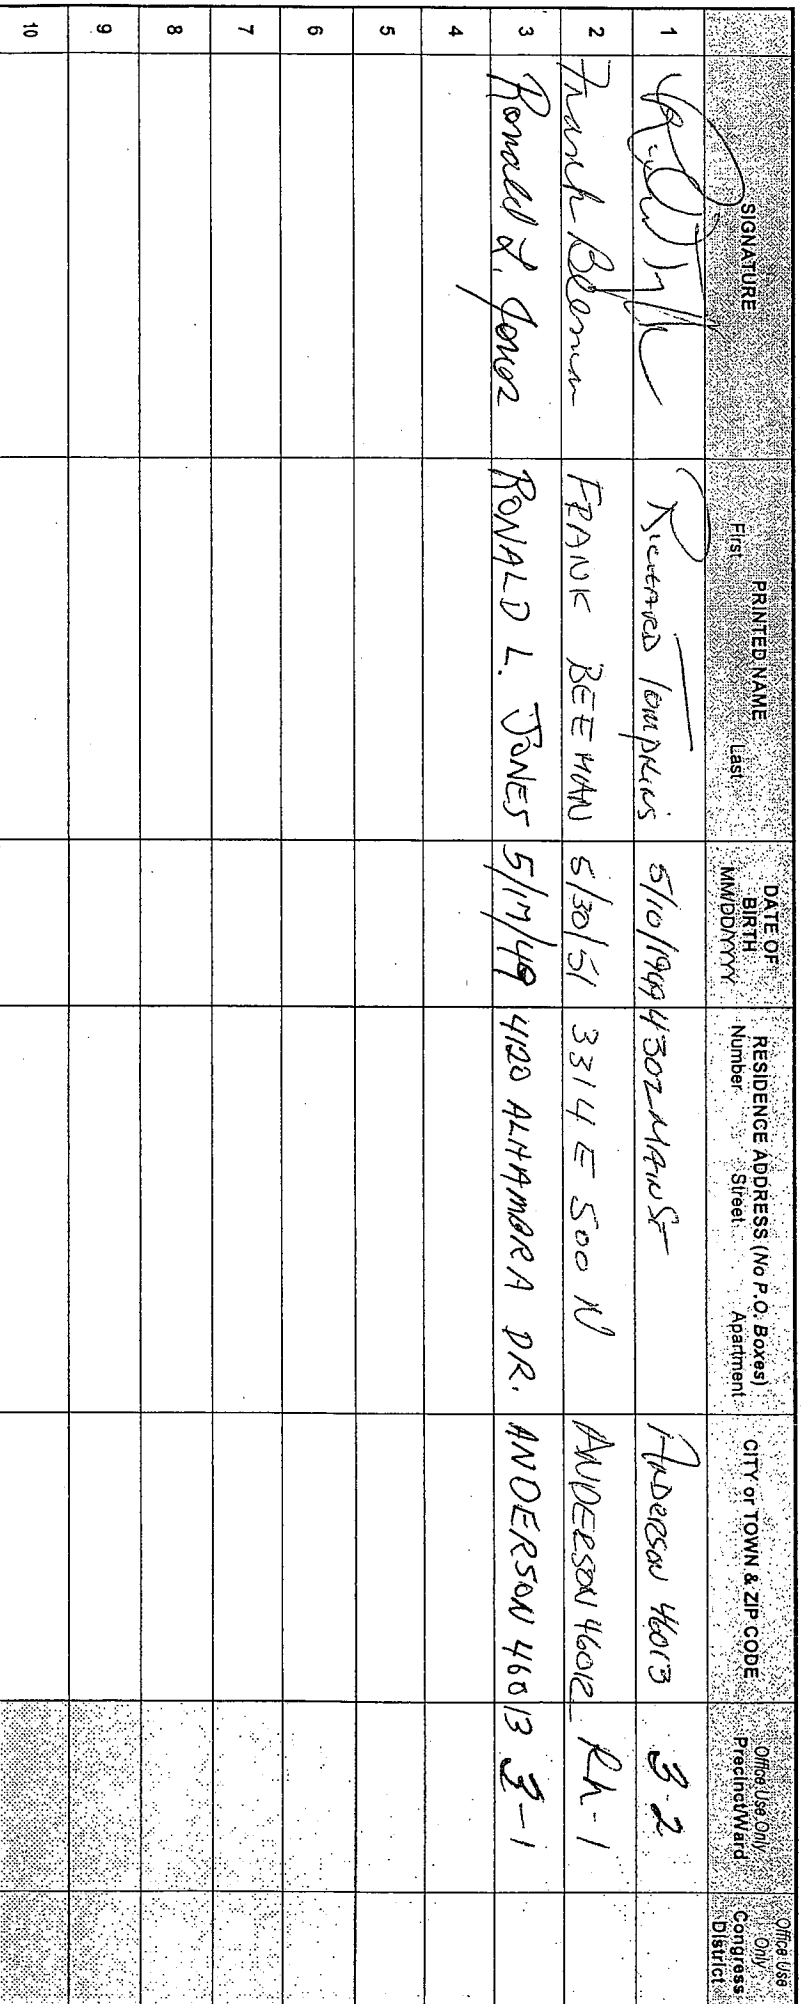 SIGNATURE
PRINTED NAME
First Last
DATE OF
BIRTH
MM/DD/YYYY
RESIDENCE ADDRESS (No P.O. Boxes)
Number Street Apartment
CITY or TOWN & ZIP CODE
Office Use Only
Precinct/Ward
Office Use
Only
Congress
District
1 RICHARD TOMPKINS 5/10/1949 4302 MAIN ST ANDERSON 46013 3-2
2 Frank Beeman FRANK BEEMAN 5/30/51 3314 E 500 N ANDERSON 46012 Rh-1
3 Ronald L. Jones RONALD L. JONES 5/17/49 4120 ALHAMBRA DR. ANDERSON 46013 3-1
4
5
6
7
8
9
10